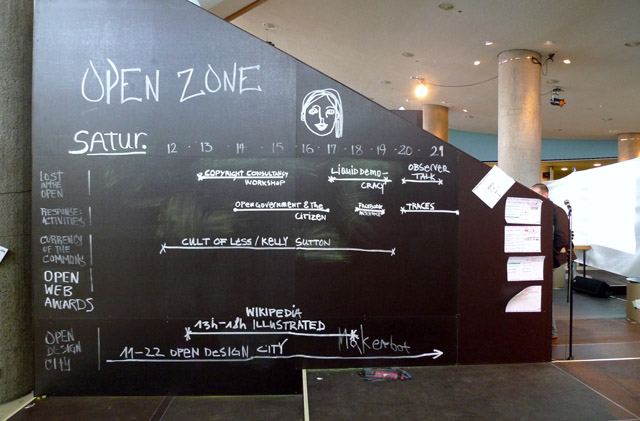 OPEN ZONE
SATUR.
12 · 13 · 14 · 15 · 16 · 17 · 18 · 19 · 20 · 21
LOST
IN THE
OPEN
COPYRIGHT CONSULTANCY
WORKSHOP
LIQUID DEMO-
CRACY
OBSERVER
TALK
RESPONSE:
ACTIVITIES
OPEN GOVERNMENT & THE
CITIZEN
FACEBOOK
TRACES
CURRENCY
OF THE
COMMONS
CULT OF LESS / KELLY SUTTON
OPEN
WEB
AWARDS
OPEN
DESIGN
CITY
WIKIPEDIA
13h-18h ILLUSTRATED
Makerbot
11-22 OPEN DESIGN CITY